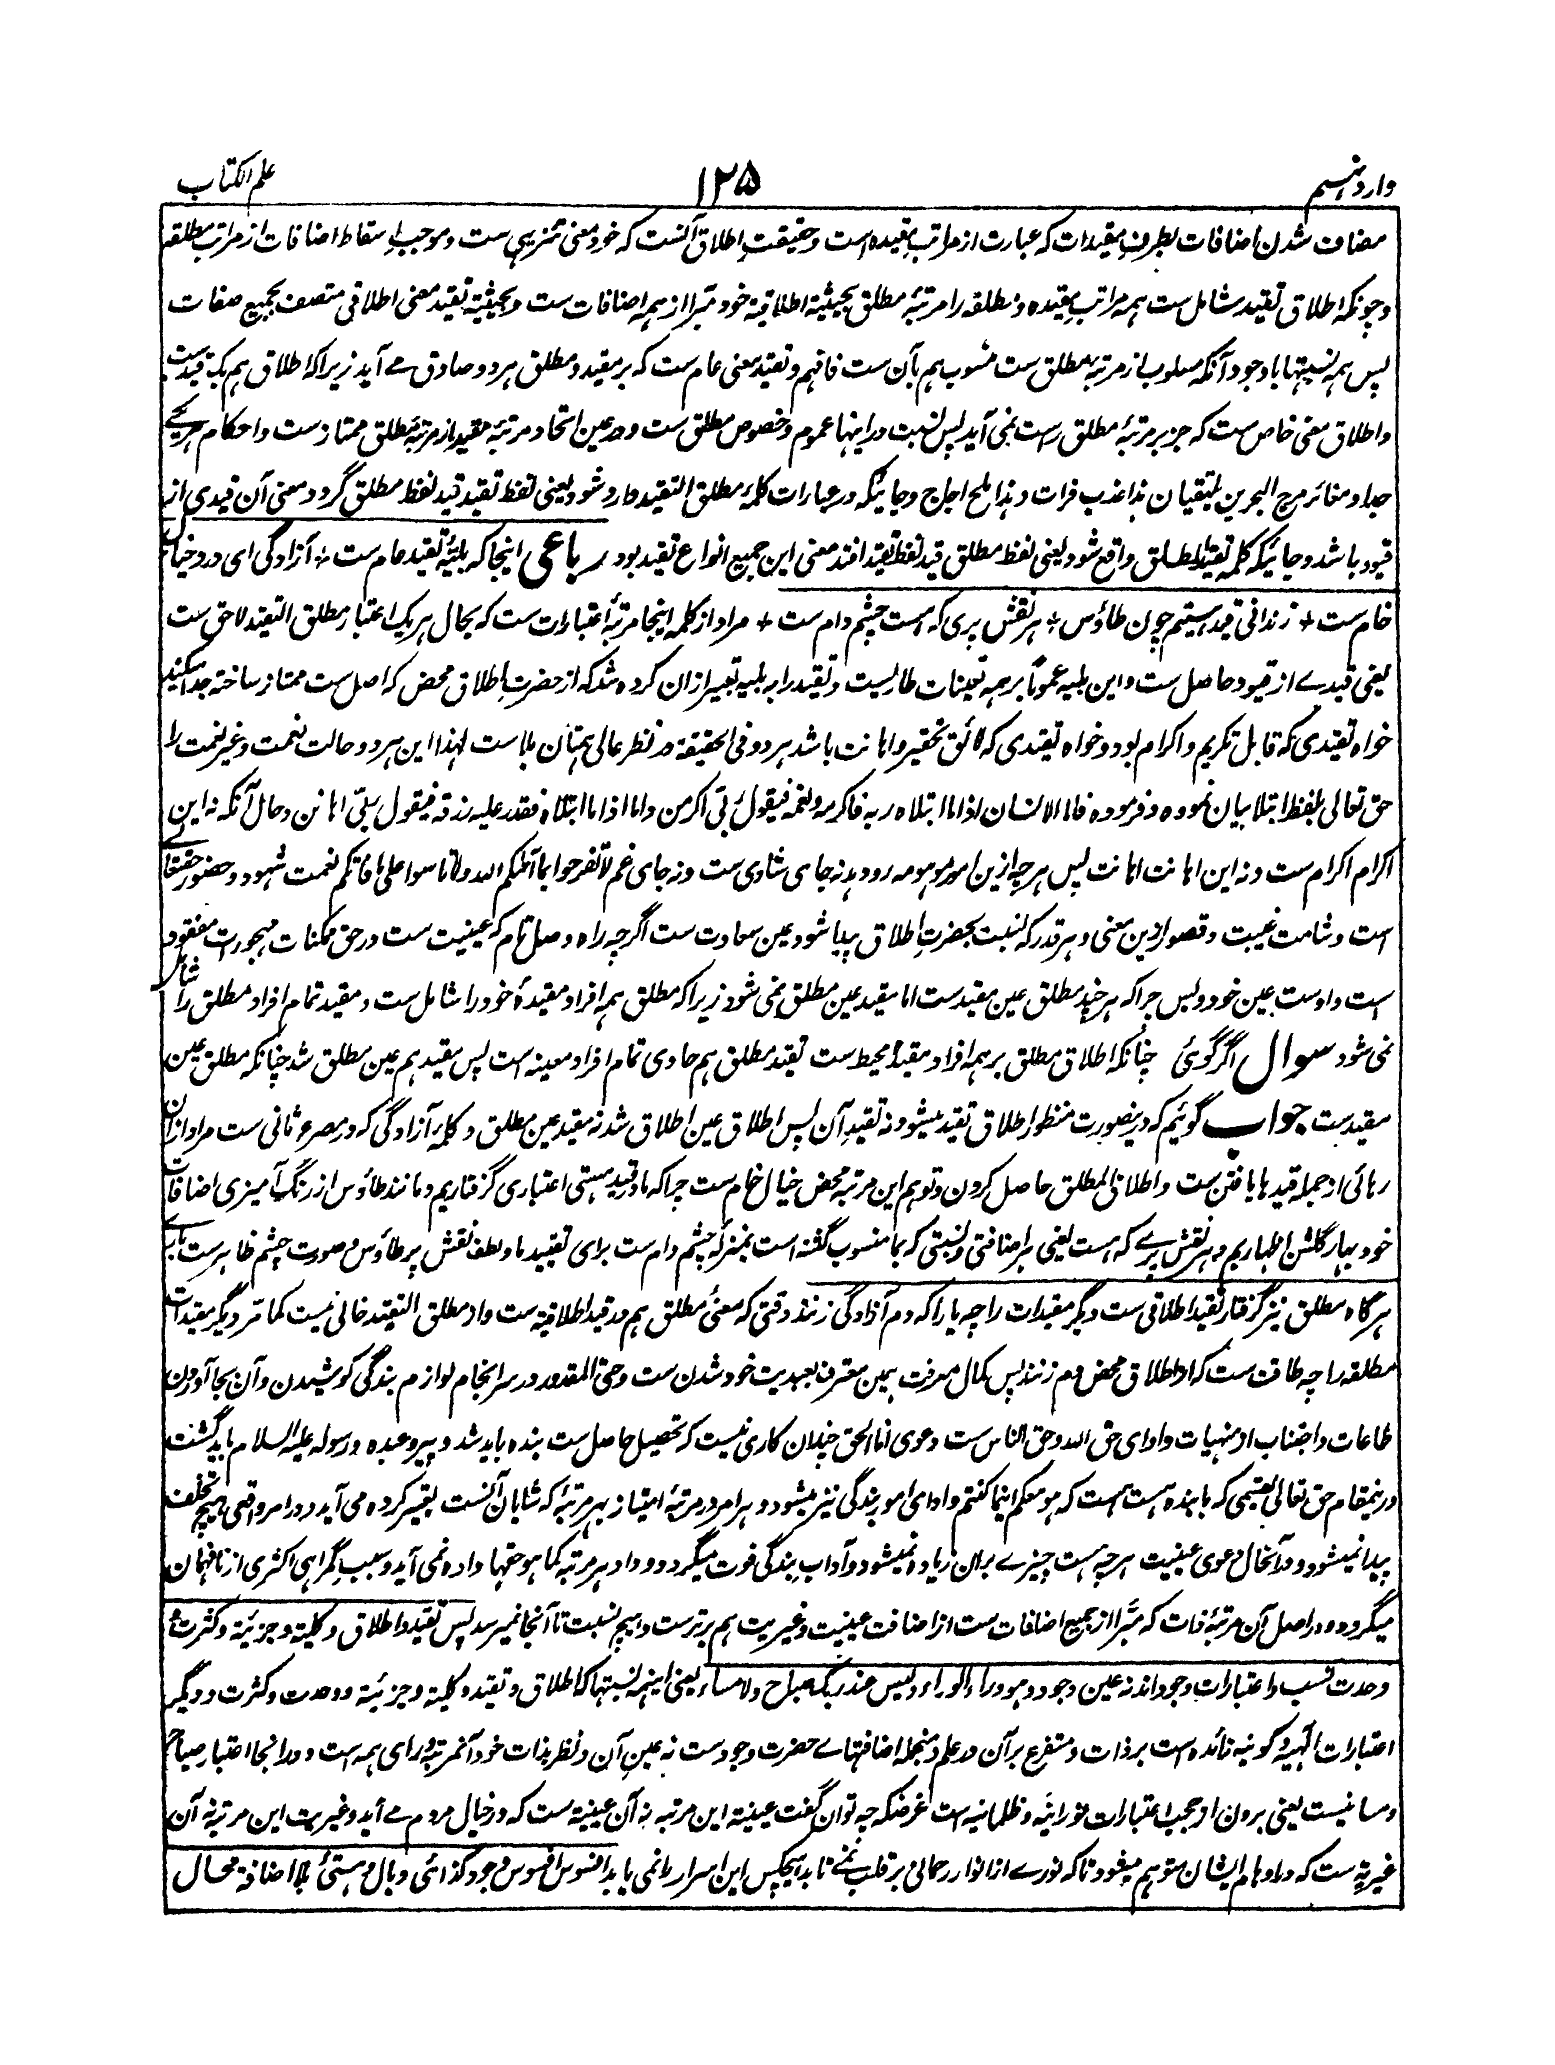 وارد نہم ۱۲۵ علم الکتاب
مضاف شدن اضافات بطرف مقیدات که عبارت از مراتب مقیده است و حقیقت اطلاق آنست که خود معنی تنزیہی ست و موجب اسقاط اضافات از مراتب مطلقه
و چونکه اطلاق تقید شامل ست ہمه مراتب مقیده و مطلقه را مرتبۂ مطلق بحیثیة اطلاقیة خود مبرا از ہمه اضافات ست و بحیثیة تقید معنی اطلاقی متصف بجمیع صفات
پس ہمه نسبتہا باوجود آنکه مسلوب از مرتبه مطلق ست منسوب ہم بآن ست فافہم و تقید معنی عام ست که بر مقید و مطلق ہر دو صادق مے آید زیراکه اطلاق ہم یک قیدست
و اطلاق معنی خاص ست که جز بر مرتبۂ مطلق راست نمی آید پس نسبت در اینہا عموم و خصوص مطلق ست و در عین اتحاد مرتبۂ مقید از مرتبۂ مطلق ممتاز ست و احکام ہریکے
جدا و مغائر مرج البحرین یلتقیان ہذا عذب فرات و ہذا ملح اجاج و جائیکه در عبارات کلمۂ مطلق التقید وارد شود یعنی لفظ تقید قید لفظ مطلق گردد معنی آن قیدی از
قیود باشد و جائیکه کلمۂ تقید المطلق واقع شود یعنی لفظ مطلق قید لفظ تقید افتد معنی این جمیع انواع تقید بود رباعی اینجا که بلیۂ تقید عام ست + آزادگی ای درد خیال
خام ست + زندانی قید ہستیم چون طاؤس + ہر نقش پری که ہست چشم دام ست + مراد از کلمه اینجا مرتبۂ اعتبارات ست که بحال ہریک اعتبار مطلق التقید لاحق ست
یعنی قیدے از قیود حاصل ست و این بلیه عموماً بر ہمه تعینات طاریست و تقید را به بلیه تعبیر ازان کرده شد که از حضرت اطلاق محض که اصل ست ممتاز ساخته جدا میکند
خواه تقیدی که قابل تکریم و اکرام بود و خواه تقیدی که لائق تحقیر و اہانت باشد ہر دو فی الحقیقة در نظر عالی ہمتان بلاست لہذا این ہر دو حالت نعمت و غیر نعمت را
حق تعالی بلفظ ابتلا بیان نموده و فرموده فاما الانسان اذا ما ابتلاه ربه فاکرمه و نعمه فیقول ربی اکرمن و اما اذا ما ابتلاه فقدر علیه رزقه فیقول ربی اہانن و حال آنکه نه این
اکرام اکرام ست و نه این اہانت اہانت پس ہرچه ازین امور موہومه رو دہد نه جای شادی ست و نه جای غم لا تفرحوا بما آتکم الله ولا تاسوا علی ما فاتکم نعمت شہود و حضور حقیقة
است و شامت غیبت و قصور ازین معنی و ہر قدر که نسبت بحضرت اطلاق پیدا شود عین سعادت ست اگرچه راه وصل تام که عینیت ست در حق ممکنات مہجورات مفقود
است و اوست عین خود و بس چراکه ہرچند مطلق عین مقیدست اما مقید عین مطلق نمی شود زیراکه مطلق ہمه افراد مقیدۂ خود را شامل ست و مقید تمام افراد مطلق را شامل
نمی شود سوال اگر گوئی چنانکه اطلاق مطلق بر ہمه افراد مقیده محیط ست تقید مطلق ہم حاوی تمام افراد معینه است پس مقید ہم عین مطلق شد چنانکه مطلق عین
مقیدست جواب گوئیم که درینصورت منظور اطلاق تقید میشود نه تقید آن پس اطلاق عین اطلاق شد نه مقید عین مطلق و کلمۂ آزادگی که در مصرعه ثانی ست مراد ازان
رہائی از جمله قیدہا یافتن ست و اطلاق المطلق حاصل کردن و توہم این مرتبه محض خیال خام ست چراکه ما در قید ہستی اعتباری گرفتاریم و مانند طاؤس از رنگ آمیزی اضافات
خود بہار گلشن اظہاریم و ہر نقش پرے که ہست یعنی ہر اضافتی و نسبتی که بما منسوب گشته است بمنزلۂ چشم دام ست برای تقیید ما و لطف نقش پر طاؤس و صورت چشم ظاہرست
ہرگاه مطلق نیز گرفتار تقید اطلاقی ست دیگر مقیدات را چه یارا که دم آزادگی زنند وقتی که معنیٔ مطلق ہم در قید اطلاقیة ست و از مطلق التقید خالی نیست کما مر دیگر مقیدات
مطلقه را چه طاقت ست که از اطلاق محض دم زنند پس کمال معرفت ہمین معترف بعبدیت خود شدن ست و حتی المقدور در سرانجام لوازم بندگی کوشیدن و آن بجا آوردن
طاعات و اجتناب از منہیات و ادای حق الله و حق الناس ست دعوی انا الحق چندان کاری نیست که تحصیل حاصل ست بنده باید شد و پیرو عبده و رسوله علیه السلام باید گشت
درینمقام حق تعالی معیتی که با بنده ہست ہست که ہو معکم اینما کنتم و ادای امور بندگی نیز میشود و ہر امر در مرتبۂ امتیاز بہر مرتبۂ که شایان آنست تعبیر کرده می آید و در امر واقعی ہیچ تخلف
پیدا نمیشود و در آنحال دعوی عینیت ہرچه ہست چیزے بران زیاده نمیشود و آداب بندگی فوت میگردد و داد ہر مرتبه کما ہو حقہا داده نمی آید و سبب گمراہی اکثری از نافہمان
میگردد و در اصل آن مرتبۂ ذات که مبرا از جمیع اضافات ست از اضافت عینیت و غیریت ہم برترست و ہیچ نسبت تا آنجا نمیرسد پس تقید و اطلاق و کلیة و جزئیة و کثرت و
وحدت نسب و اعتبارات وجود اند نه عین وجود و ہو وراء الوراء و لیس عند ربک صباح ولا مساء یعنی اینہمه نسبتہا که اطلاق و تقید و کلیة و جزئیة و وحدت و کثرت و دیگر
اعتبارات الٰہیه و کونیه زائده است بر ذات و متفرع بر آن در علم و منجمله اضافتہاے حضرت وجودست نه عین آن و نظر بذات خود آنمرتبه ورای ہمه است و در انجا اعتبار صباح
و مسا نیست یعنی برون از حجب اعتبارات نورانیه و ظلمانیه است غرضکه چه توان گفت عینیة این مرتبه نه آن عینیة ست که در خیال مردم مے آید و غیریت این مرتبه نه آن
غیریة ست که در اوہام ایشان متوہم میشود تا که نورے از انوار رحمانی بر قلب نمے تابد ہیچکس این اسرار را نمی یابد افسوس افسوس وجود کذائی وبال و ہستیٔ بلا اضافة محال